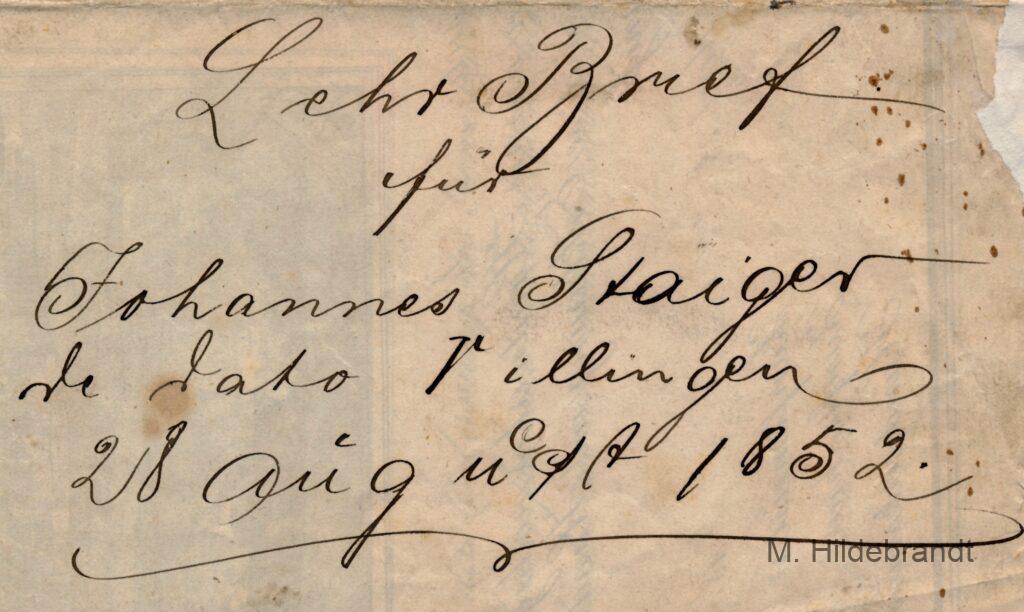 Lehr Brief
für
Johannes Staiger
de dato Villingen
28 August 1852.
M. Hildebrandt